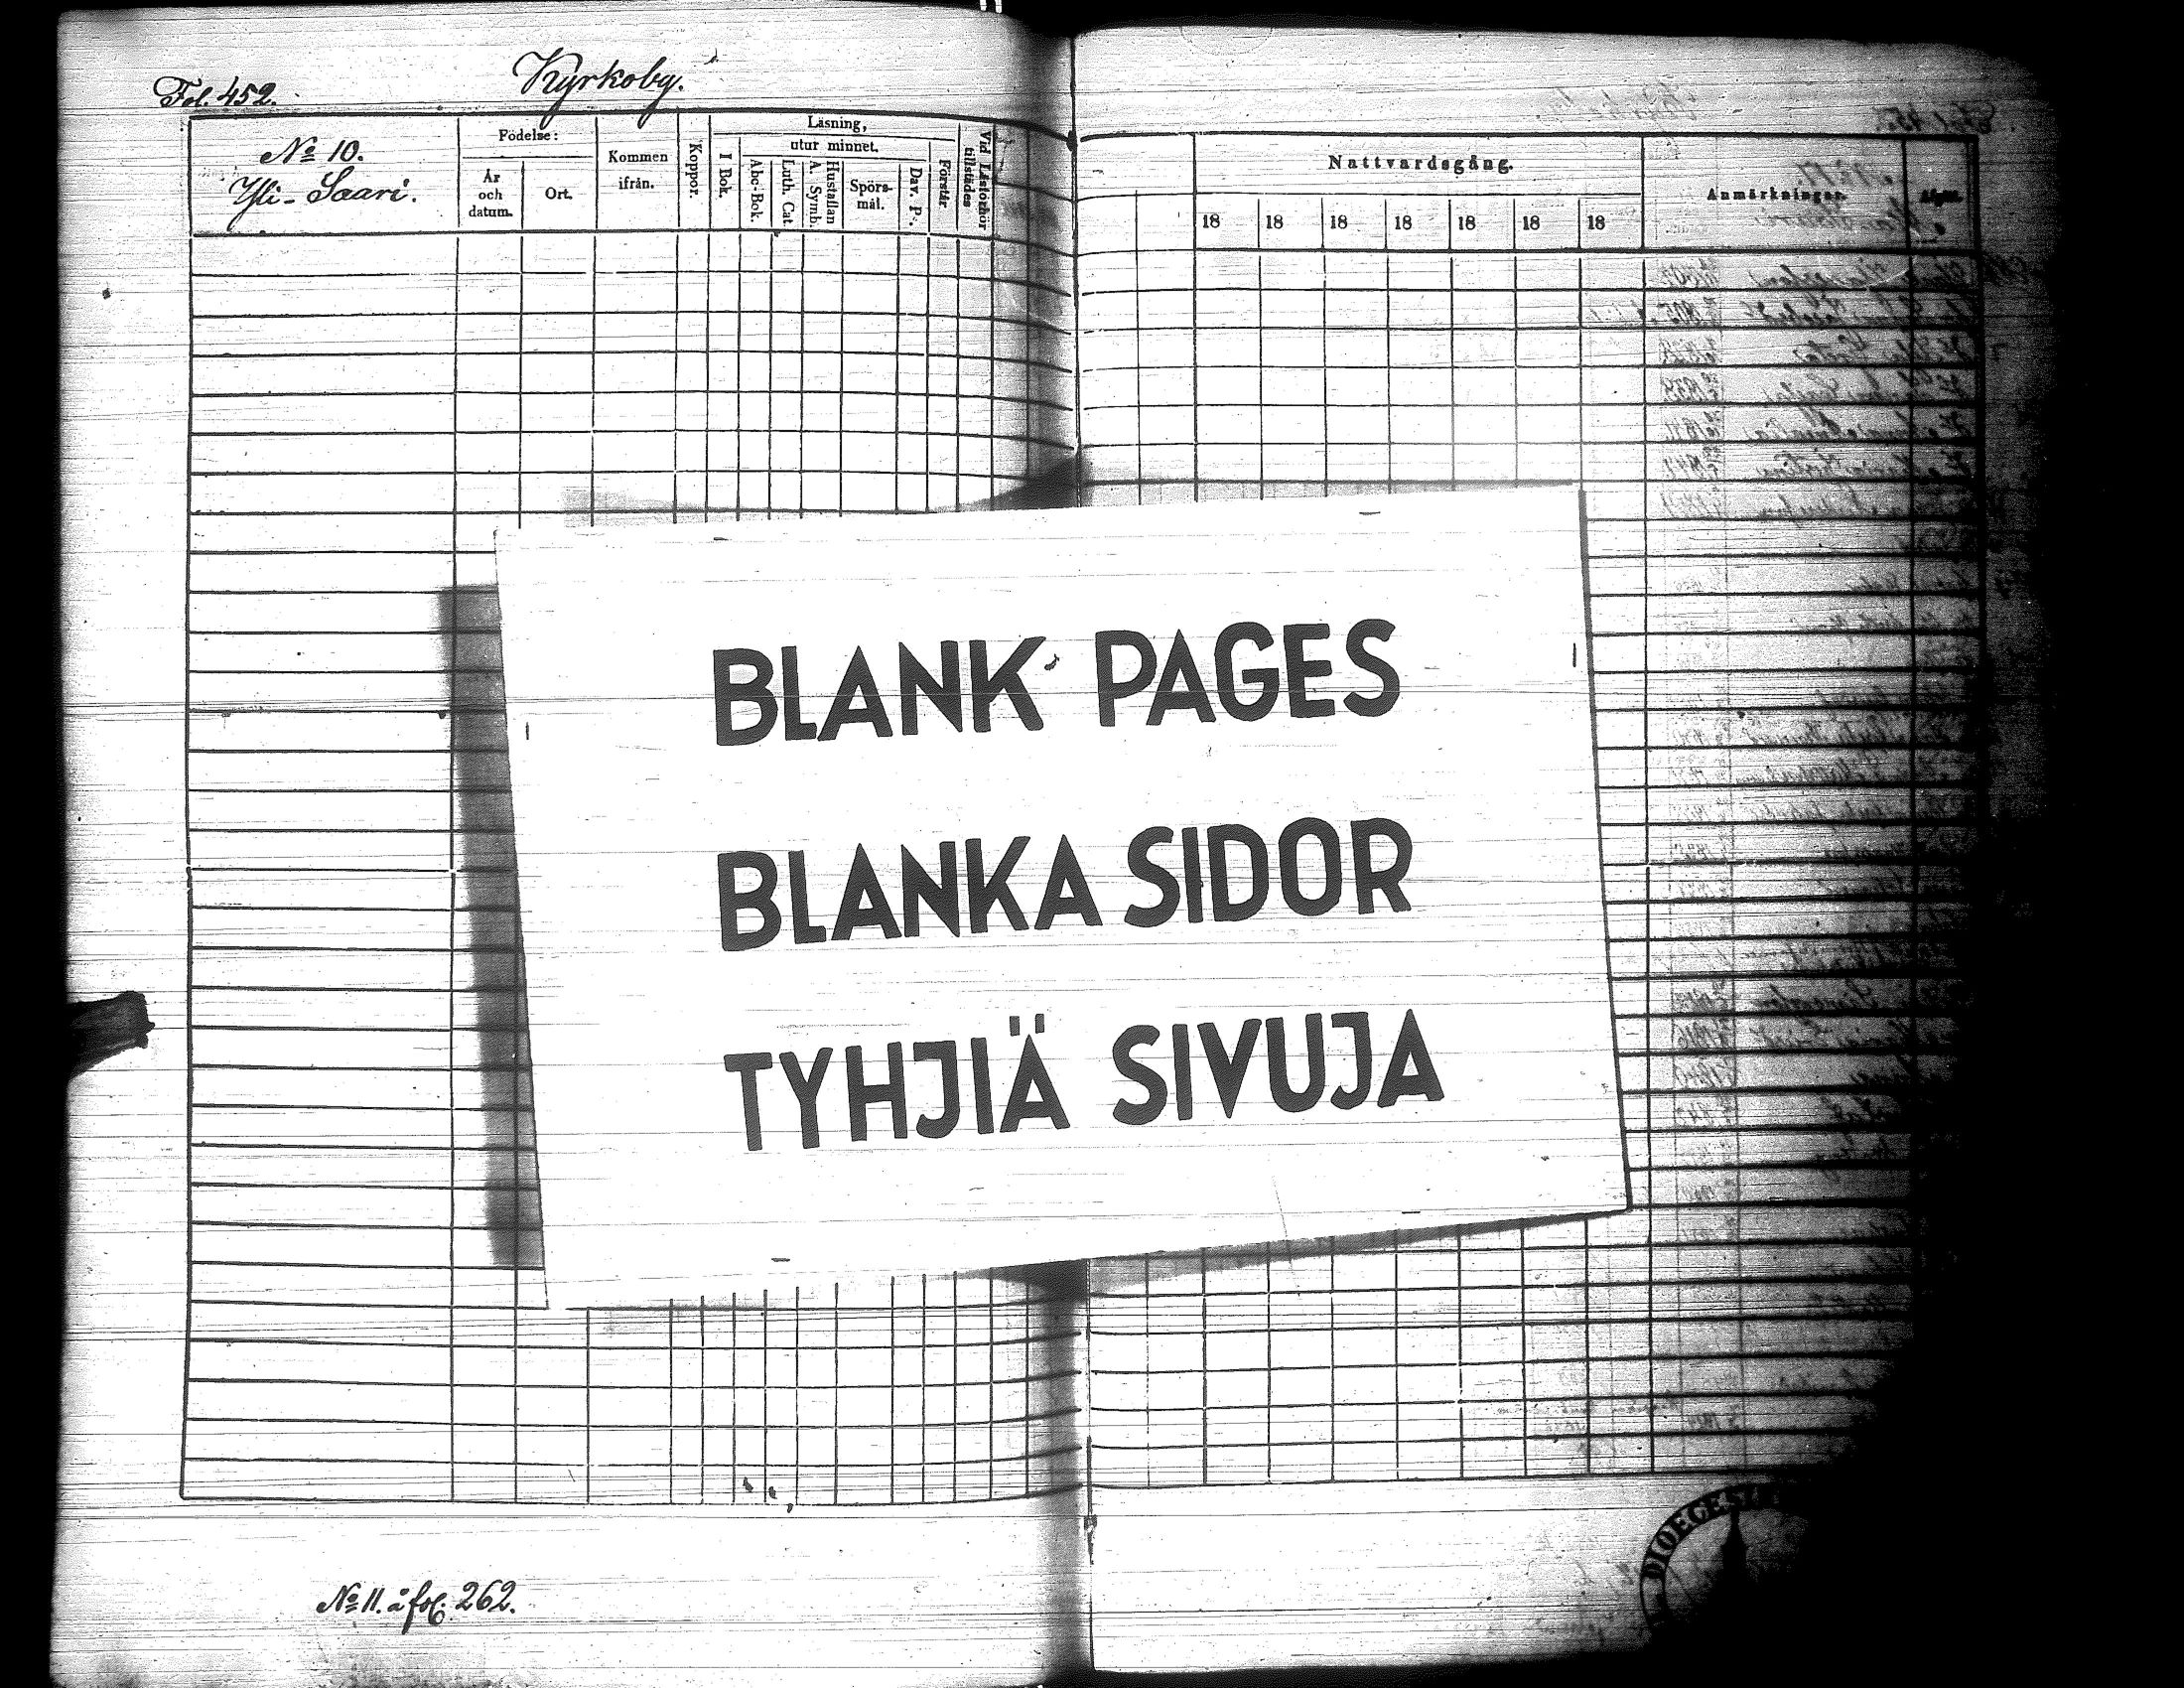 Fol. 452.
Kyrkoby.
No 10.
Yli-Saari.
Födelse:
År
och
datum.
Ort.
Kommen
ifrån.
Koppor.
Läsning,
utur minnet.
I Bok.
Abc-Bok.
Luth. Cat.
A. Symb.
Hustaflan
Spörs-
mål.
Dav. P.
Förstår
Vid Läsförhör
tillstädes
Nattvardsgång.
18 18 18 18 18 18 18
Anmärkningar.
BLANK PAGES
BLANKA SIDOR
TYHJIÄ SIVUJA
No 11. å fol. 262.